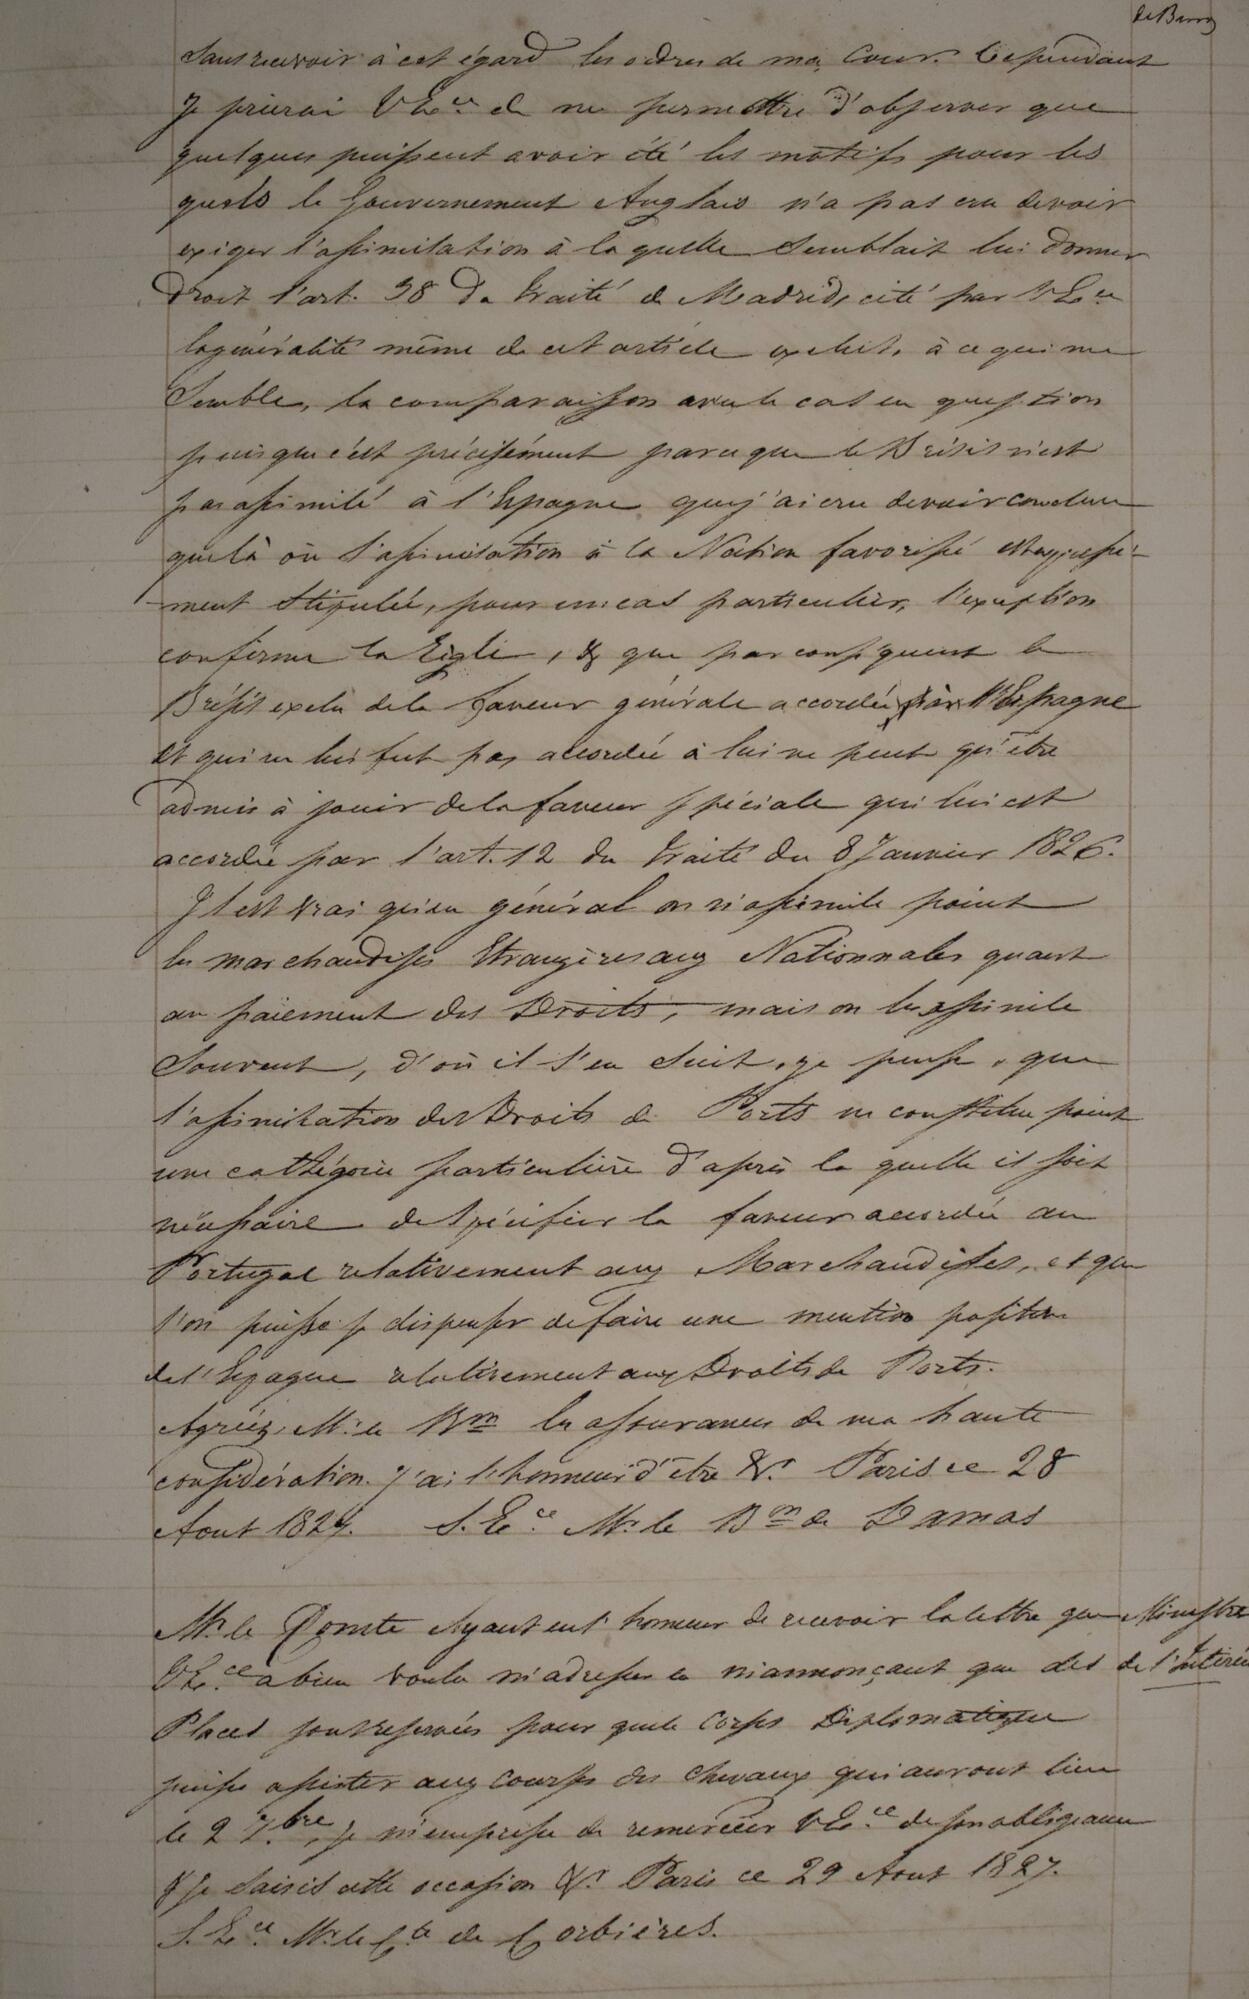 de Barros
Sans recevoir à cet égard les ordres de ma Cour. Cependant
Je prierai V Ex.ce de me permettre d'observer que
quelques puissent avoir été les motifs pour les
quels le Gouvernement Anglais n'a pas cru devoir
exiger l'assimilation à la quelle semblait lui donner
droit l'art. 38 du traité de Madrid, cité par V Ex.ce
la généralité même de cet article exclut, à ce qui me
semble, la comparaison avec le cas en question
puisque c'est précisément parceque le Brésil n'est
pas assimilé à l'Espagne que j'ai cru devoir conclure
que là où l'assimilation à la Nation favorisée est expressé-
ment stipulée, pour un cas particulier, l'exception
confirme la Règle, & que par conséquent le
Brésil exclu de la faveur générale accordée à l'Espagne
et qui ne lui fut pas accordée à lui ne peut qu'être
admis à jouir de la faveur spéciale qui lui est
accordée par l'art. 12 du traité du 8 Janvier 1826.
Il est vrai qu'en général on n'assimile point
les marchandises Etrangères aux Nationnales quant
au paiement des Droits, mais on les assimile
souvent, d'où il s'en suit, je pense, que
l'assimilation des Droits de Ports ne constitue point
une cathégorie particulière d'après la quelle il soit
nécessaire de spécifier la faveur accordée au
Portugal relativement aux Marchandises, et que
l'on puisse se dispenser de faire une mention positive
de l'Espagne relativement aux Droits de Ports.
Agréez, Mr le Bon les assurances de ma haute
considération. J'ai l'honneur d'être &r Paris ce 28
Aout 1827. S. Ex.ce Mr le Bon de Damas
Mr le Comte Ayant eu l'honneur de recevoir la lettre que
Ministre
de l'Intérieur
V Ex.ce a bien voulu m'adresser en m'annonçant que des
Places sont reservées pour que le Corps Diplomatique
puisse assister aux courses des chevaux qui auront lieu
le 2 7.bre, je m'empresse de remercier V Ex.ce de son obligeance
& je saisis cette occasion &r Paris ce 29 Aout 1827.
S. Ex.ce Mr le Cte de Corbières.